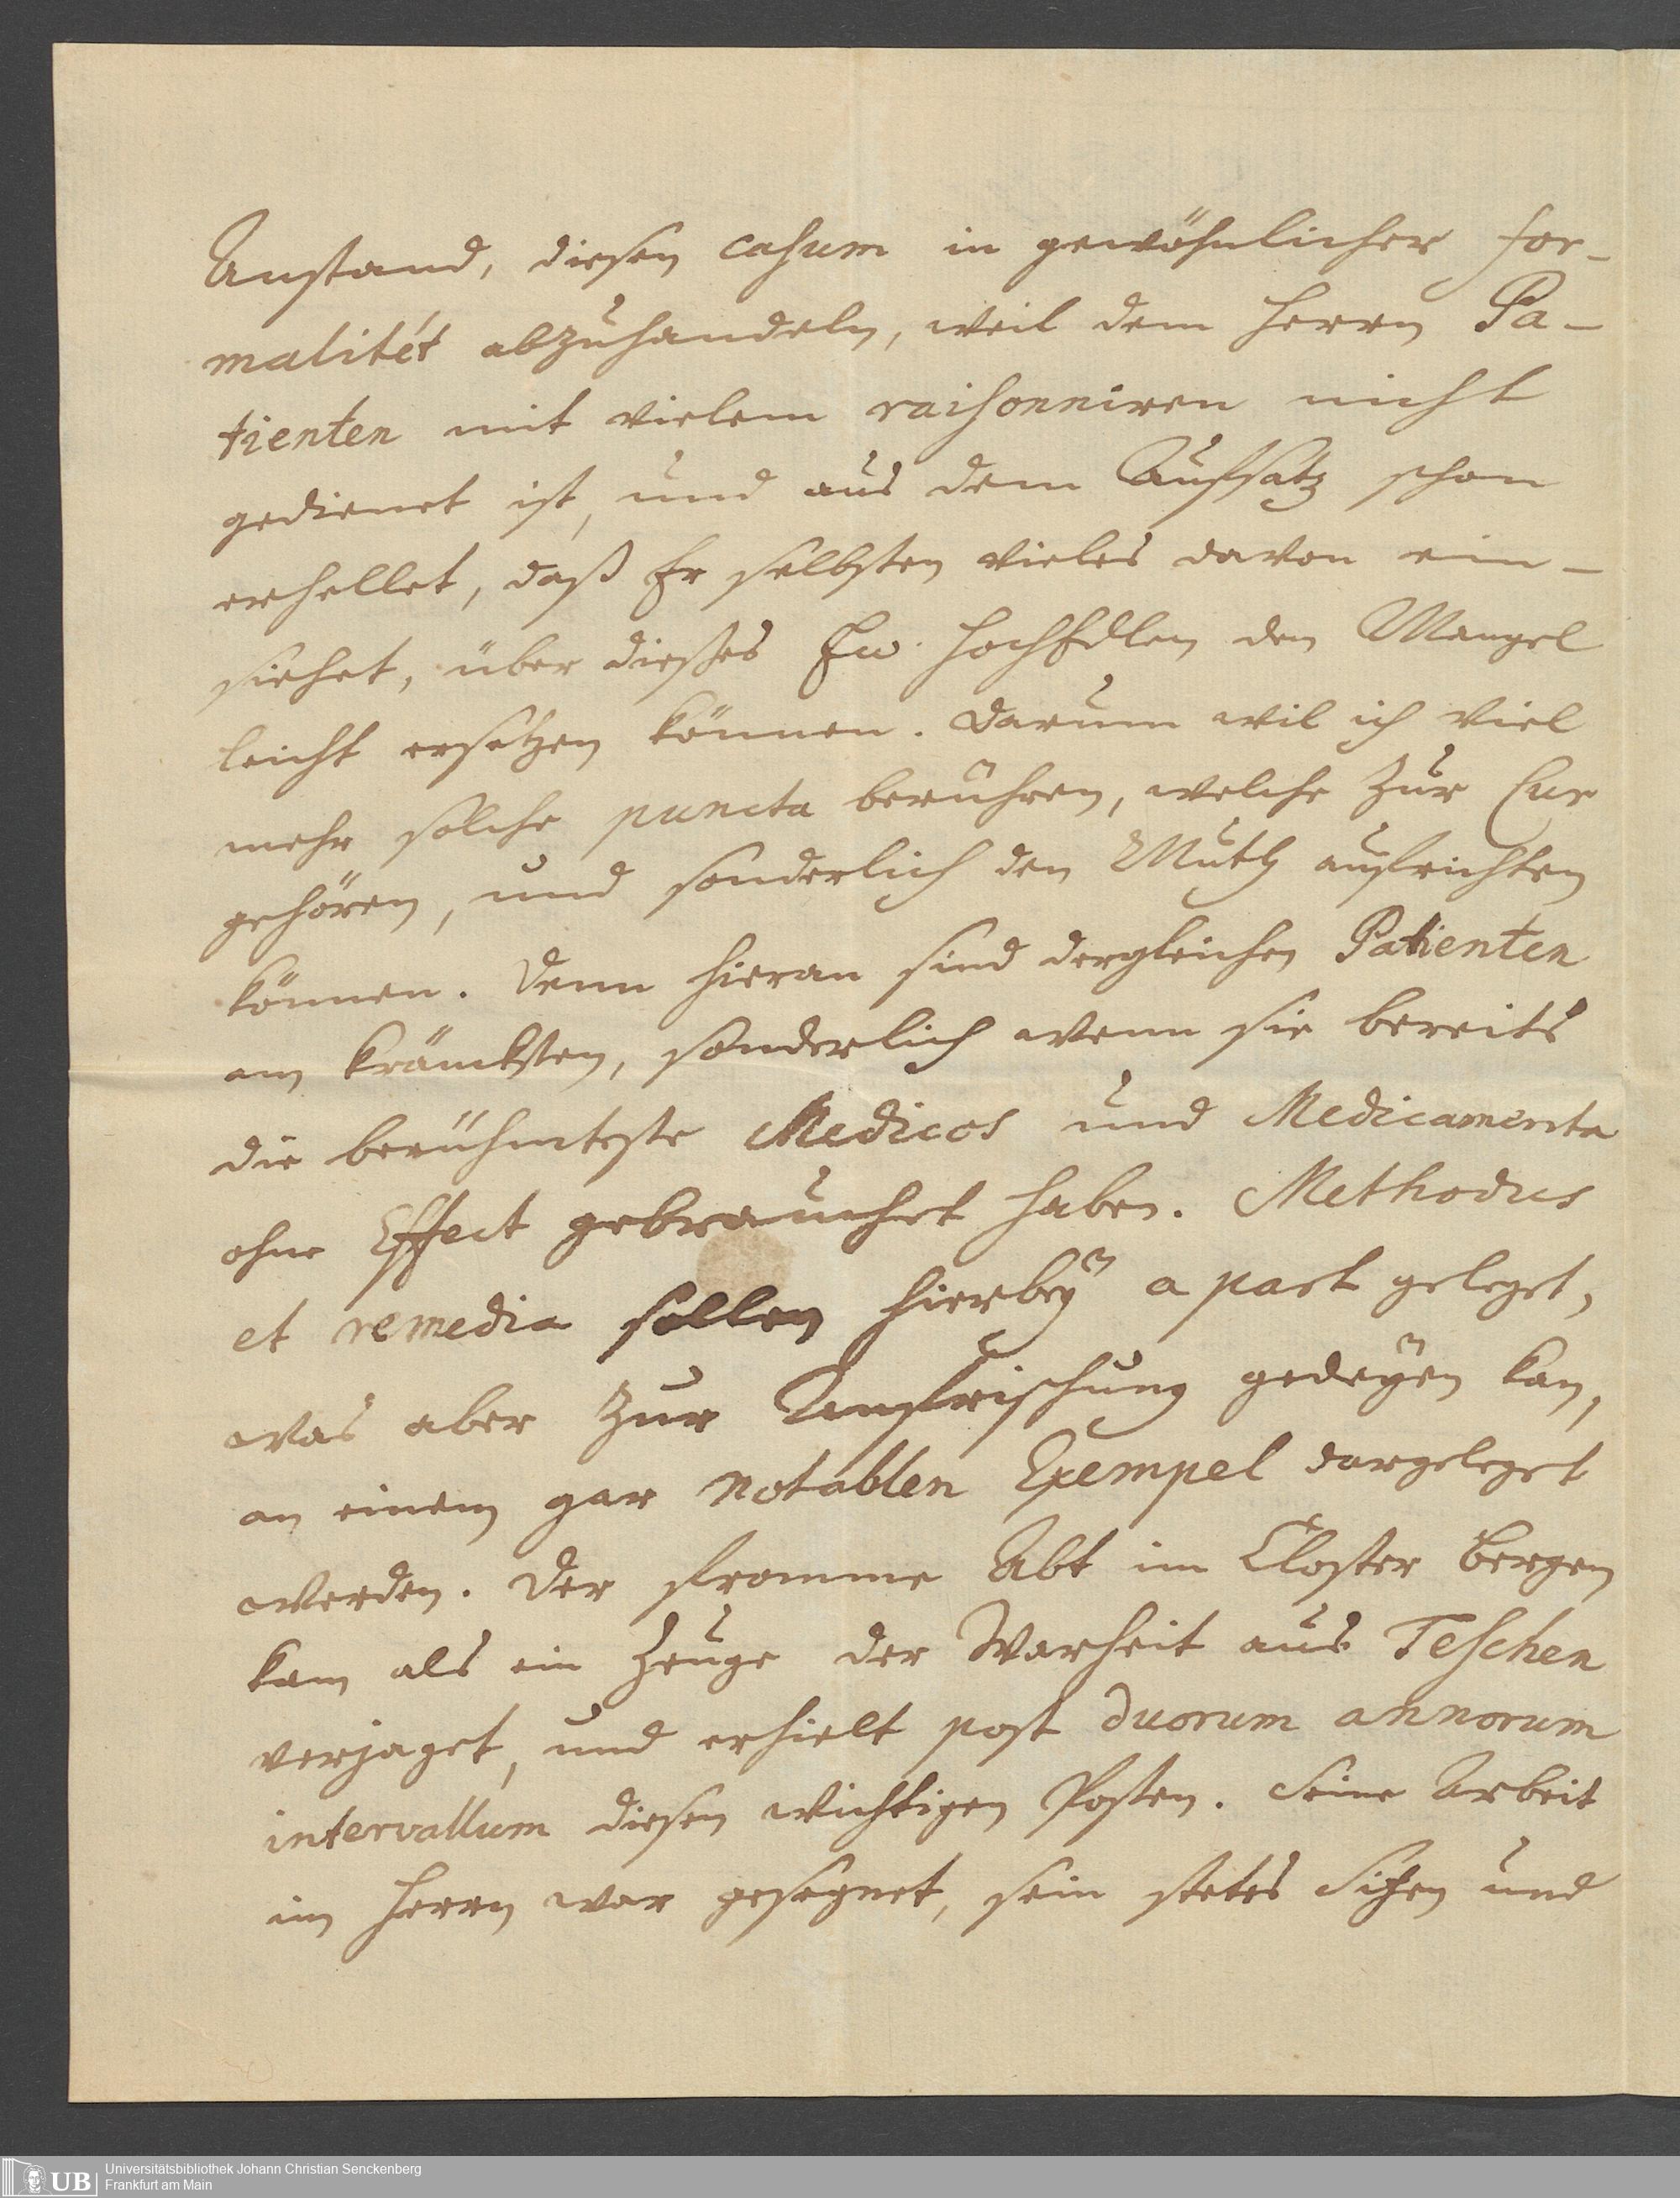 Anstand, diesen casum in gewöhnlicher for-
malitét abzuhandeln, weil dem Herrn Pa-
tienten mit vielem raisonniren nicht
gedienet ist, und aus dem Aufsatz schon
erhellet, daß Er selbsten vieles davon ein-
siehet, über dieses Ew. HochEdlen den Mangel
leicht ersetzen können. Darum wil ich viel
mehr solche puncta berühren, welche zur Cur
gehören, und sonderlich den Muth aufrichten
können. Denn hieran sind dergleichen Patienten
am kräncksten, sonderlich wenn sie bereits
die berühmteste Medicos und Medicamenta
ohne Effect gebrauchet haben. Methodus
et remedia sollen hierbey a part geleget,
was aber zur Anfrischung gedeyen kan,
an einem gar notablen Exempel dargeleget
werden. Der fromme Abt im Closter Bergen
kam als ein Zeuge der Warheit aus Teschen
verjaget, und erhielt post duorum annorum
intervallum diesen wichtigen Posten. Seine Arbeit
im Herrn war gesegnet, sein stetes Sitzen und
UB
Universitätsbibliothek Johann Christian Senckenberg
Frankfurt am Main